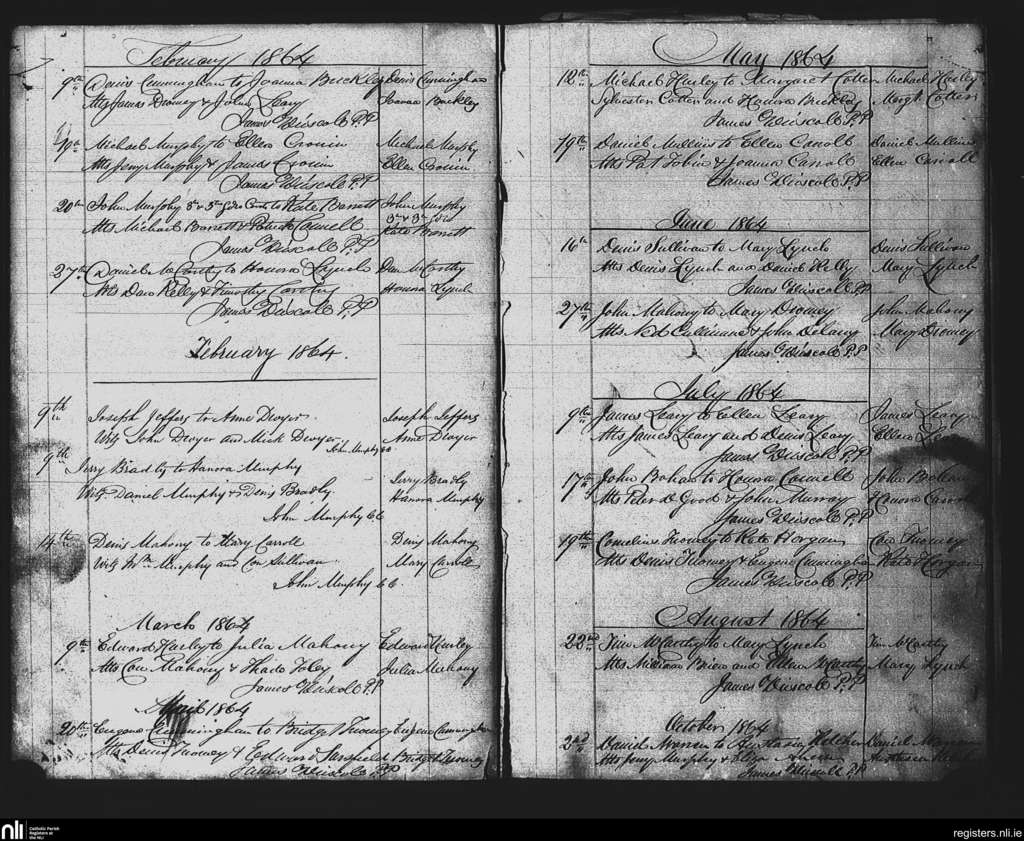 February 1864
9th Denis Cunningham to Joanna Buckley Denis Cunningham
Atts James Dromey & John Leary Joanna Buckley
James Driscoll P.P
19th Michael Murphy to Ellen Cronin Michael Murphy
Atts Jeremy Murphy & James Cronin Ellen Cronin
James Driscoll P.P
20th John Murphy to Kate Barrett John Murphy
Atts Michael Barrett & Connell Kate Barrett
James Driscoll P.P
27th Daniel McCarthy to Honora Lynch Dan McCarthy
Atts Dan Kelly & Timothy Honora Lynch
James Driscoll P.P
February 1864.
9th Joseph Jeffers to Anne Dwyer Joseph Jeffers
Wits John Dwyer and Mick Dwyer Anne Dwyer
John Murphy CC
9th Jerry Bradly to Hanora Murphy Jerry Bradly
Wits Daniel Murphy & Denis Bradly Hanora Murphy
John Murphy CC
14th Denis Mahony to Mary Carroll Denis Mahony
Wits Wm Murphy and Con Sullivan Mary Carroll
John Murphy CC
March 1864
9th Edward Hurley to Julia Mahony Edward Hurley
Atts Con Mahony & Foley Julia Mahony
James Driscoll P.P
April 1864
20th Eugene Cunningham to Bridget Twomey Eugene Cunningham
Atts Denis Twomey & Edward Sarsfield Bridget Twomey
James Driscoll P.P
May 1864
12th Michael Hurley to Margaret Cotter Michael Hurley
Sylvester Cotter and Honora Buckley Margt Cotter
James Driscoll P.P
19th Daniel Mullins to Ellen Carroll Daniel Mullins
Atts Pat Tobin & Joanna Carroll Ellen Carroll
James Driscoll P.P
June 1864
16th Denis Sullivan to Mary Lynch Denis Sullivan
Atts Denis Lynch and Daniel Kelly Mary Lynch
James Driscoll P.P
27th John Mahony to Mary Dromey John Mahony
Atts Ned Cullinane & John Delany Mary Dromey
James Driscoll P.P
July 1864
9th James Leary to Ellen Leary James Leary
Atts James Leary and Denis Leary Ellen
James Driscoll P.P
17th John Bohan to Honora Connell John Bohan
Atts Peter & John Murray Honora
James Driscoll P.P
19th Cornelius Twomey to Kate Horgan Con Twomey
Atts Denis Twomey & Eugene Cunningham Kate Horgan
James Driscoll P.P
August 1864
22nd Tim McCarthy to Mary Lynch Tim McCarthy
Atts William Brien and Ellen McCarthy Mary Lynch
James Driscoll P.P
October 1864
2nd to Daniel
Atts Jeremy Murphy & Eliza
James Driscoll P.P
nli
Catholic Parish
Registers at
the NLI
registers.nli.ie